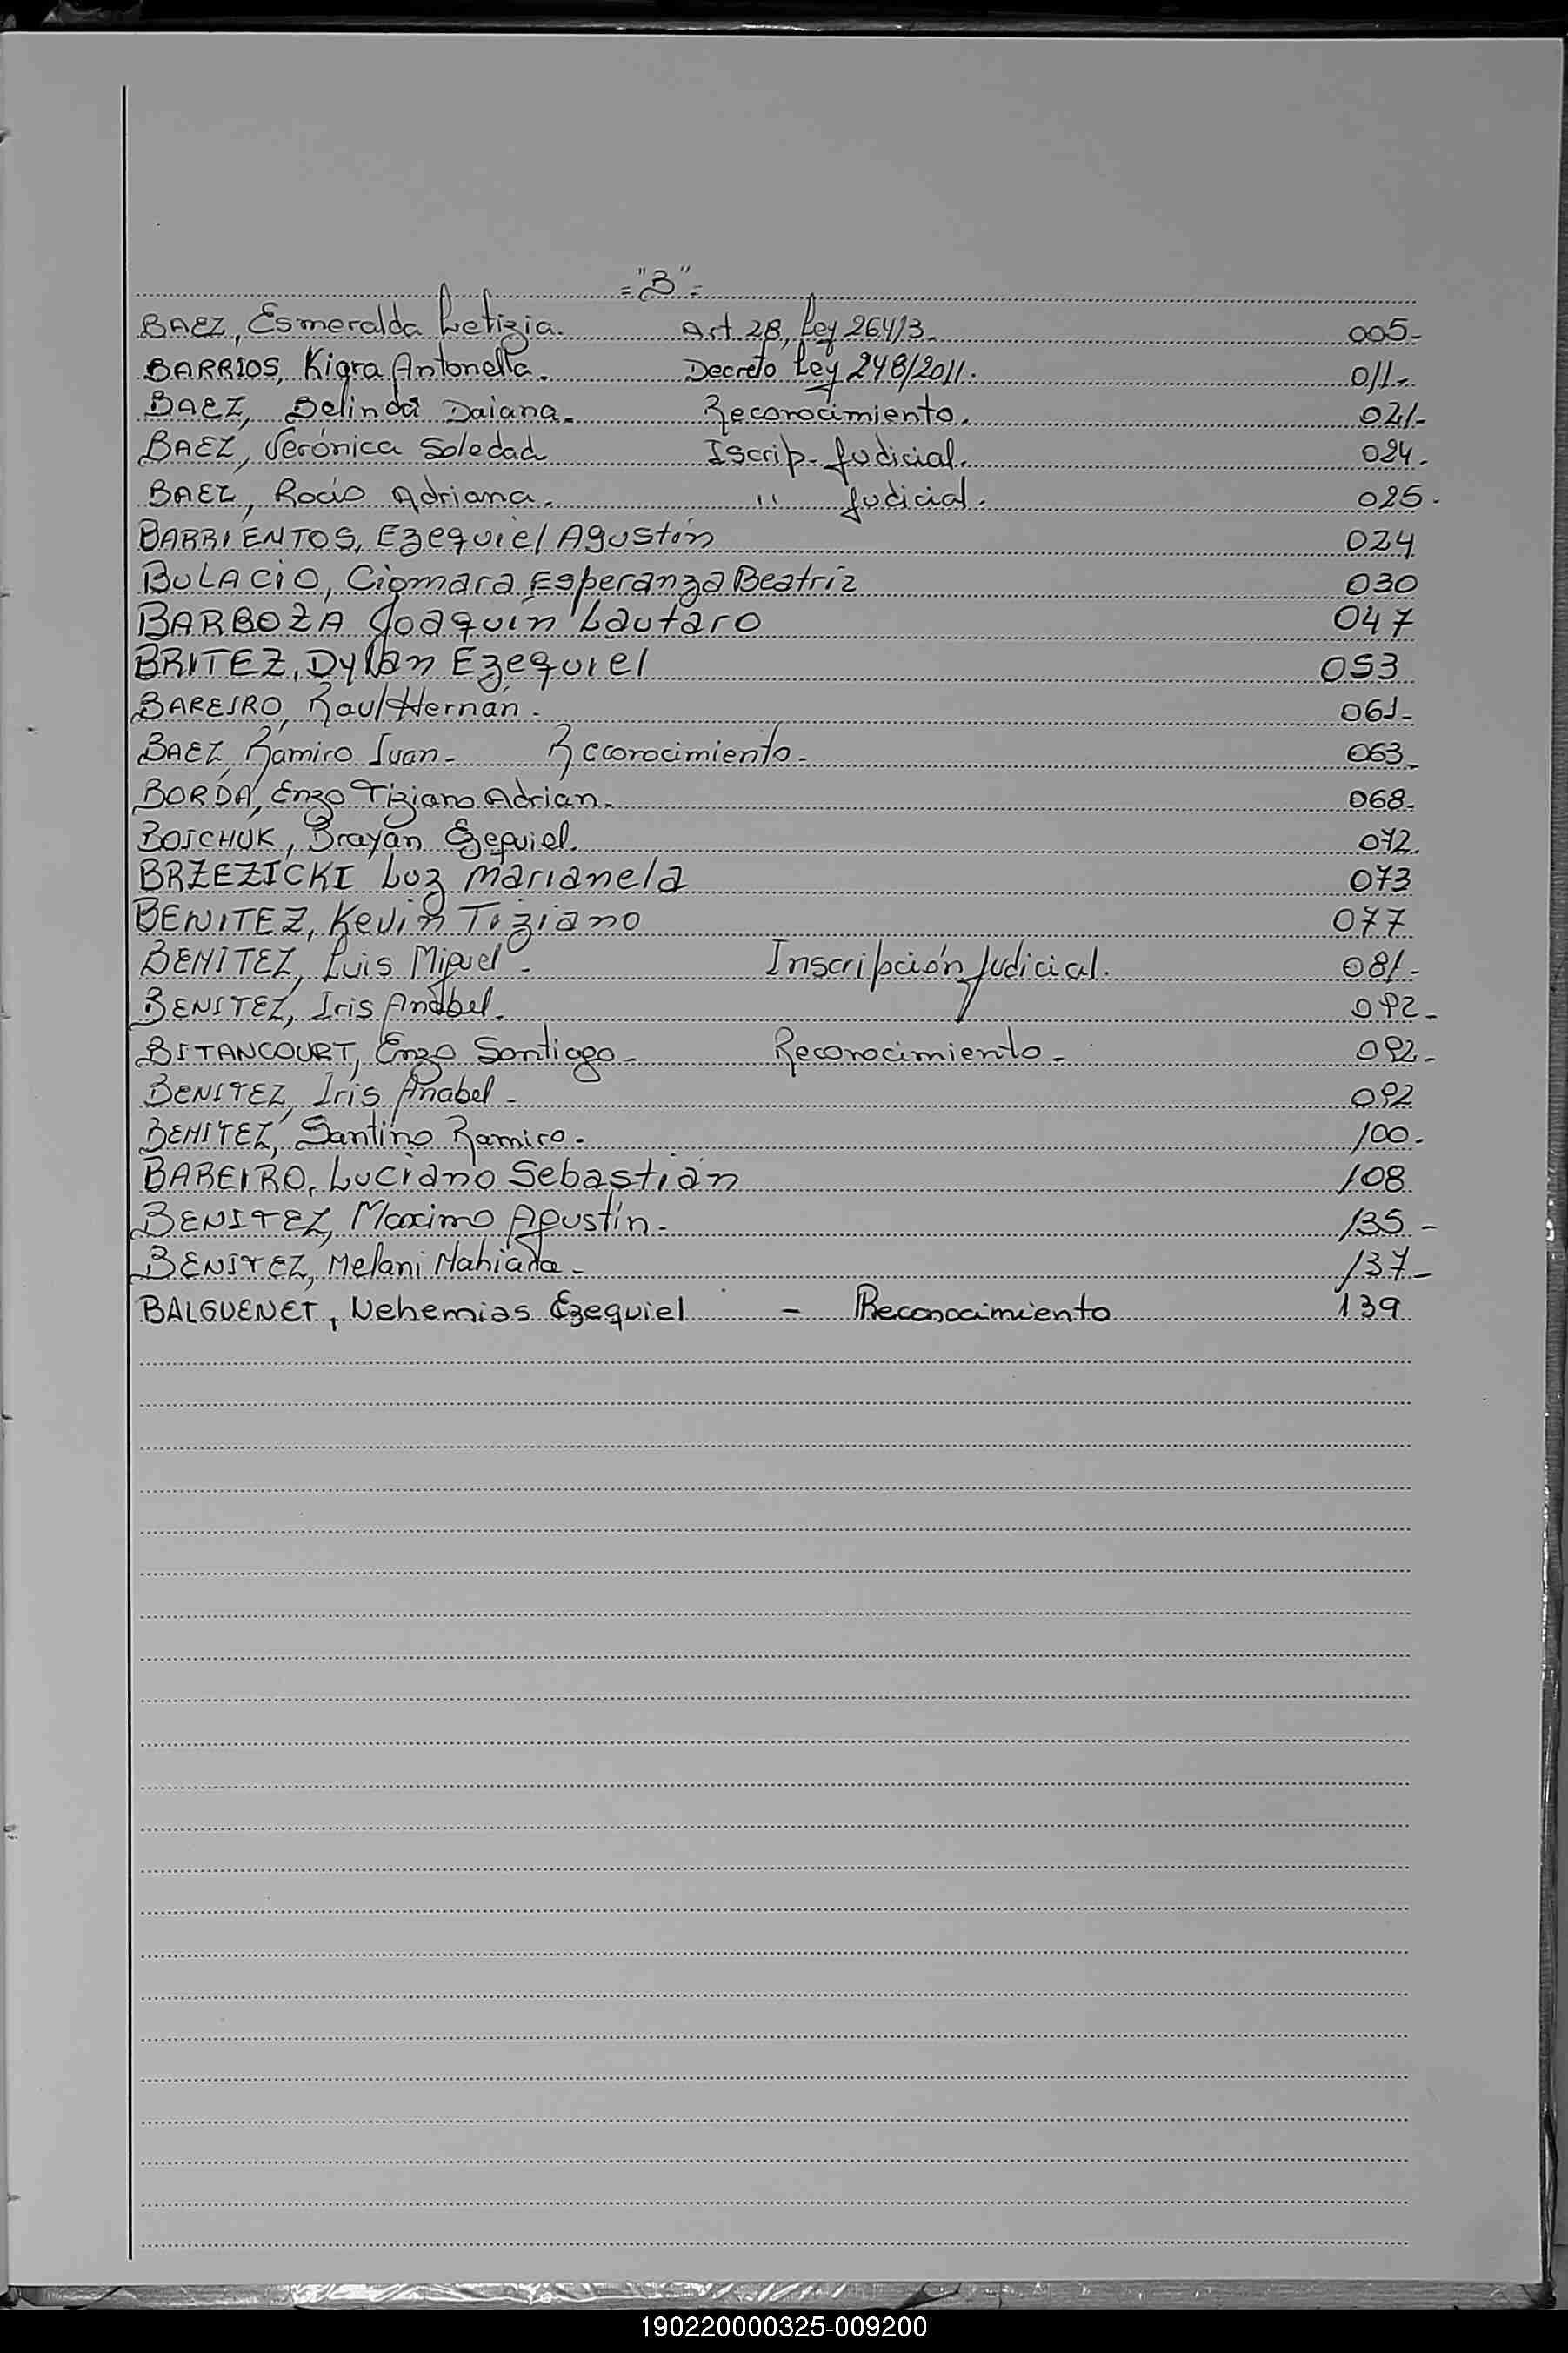 ="B"=
BAEZ, Esmeralda Letizia. Art. 28, Ley 26413. 005-
BARRIOS, Kigra Antonella. Decreto Ley 248/2011. 011-
BAEZ, Belinda Daiana. Reconocimiento. 021-
BAEZ, Verónica Soledad Iscrip. Judicial. 024.
BAEZ, Rocío Adriana. " Judicial. 025.
BARRIENTOS, Ezequiel Agustín 024
BULACIO, Ciomara Esperanza Beatriz 030
BARBOZA Joaquín Lautaro 047
BRITEZ, Dylan Ezequiel 053
BAREIRO, Raul Hernán. 061-
BAEZ, Ramiro Ivan- Reconocimiento- 063-
BORDA, Enzo Tiziano Adrian. 068-
BOICHUK, Brayan Ezequiel. 072.
BRZEZICKI Luz Marianela 073
BENITEZ, Kevin Tiziano 077
BENITEZ, Luis Miguel- Inscripción Judicial. 081-
BENITEZ, Iris Anabel. 092-
BITANCOURT, Enzo Santiago- Reconocimiento- 092-
BENITEZ, Iris Anabel- 092
BENITEZ, Santino Ramiro. 100.
BAREIRO, Luciano Sebastián 108
BENITEZ, Maximo Agustín- 135-
BENITEZ, Melani Nahiara- 137-
BALGUENET, Nehemias Ezequiel - Reconocimiento 139
190220000325-009200